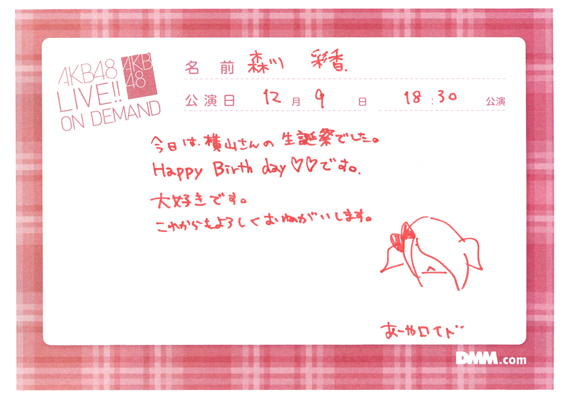 AKB48
LIVE!!
ON DEMAND
AKB
48
名前 森川 彩香
公演日 12月9日 18:30公演
今日は、横山さんの生誕祭でした。
Happy Birth day♡♡です。
大好きです。
これからもよろしくおねがいします。
あーやロイド
DMM.com